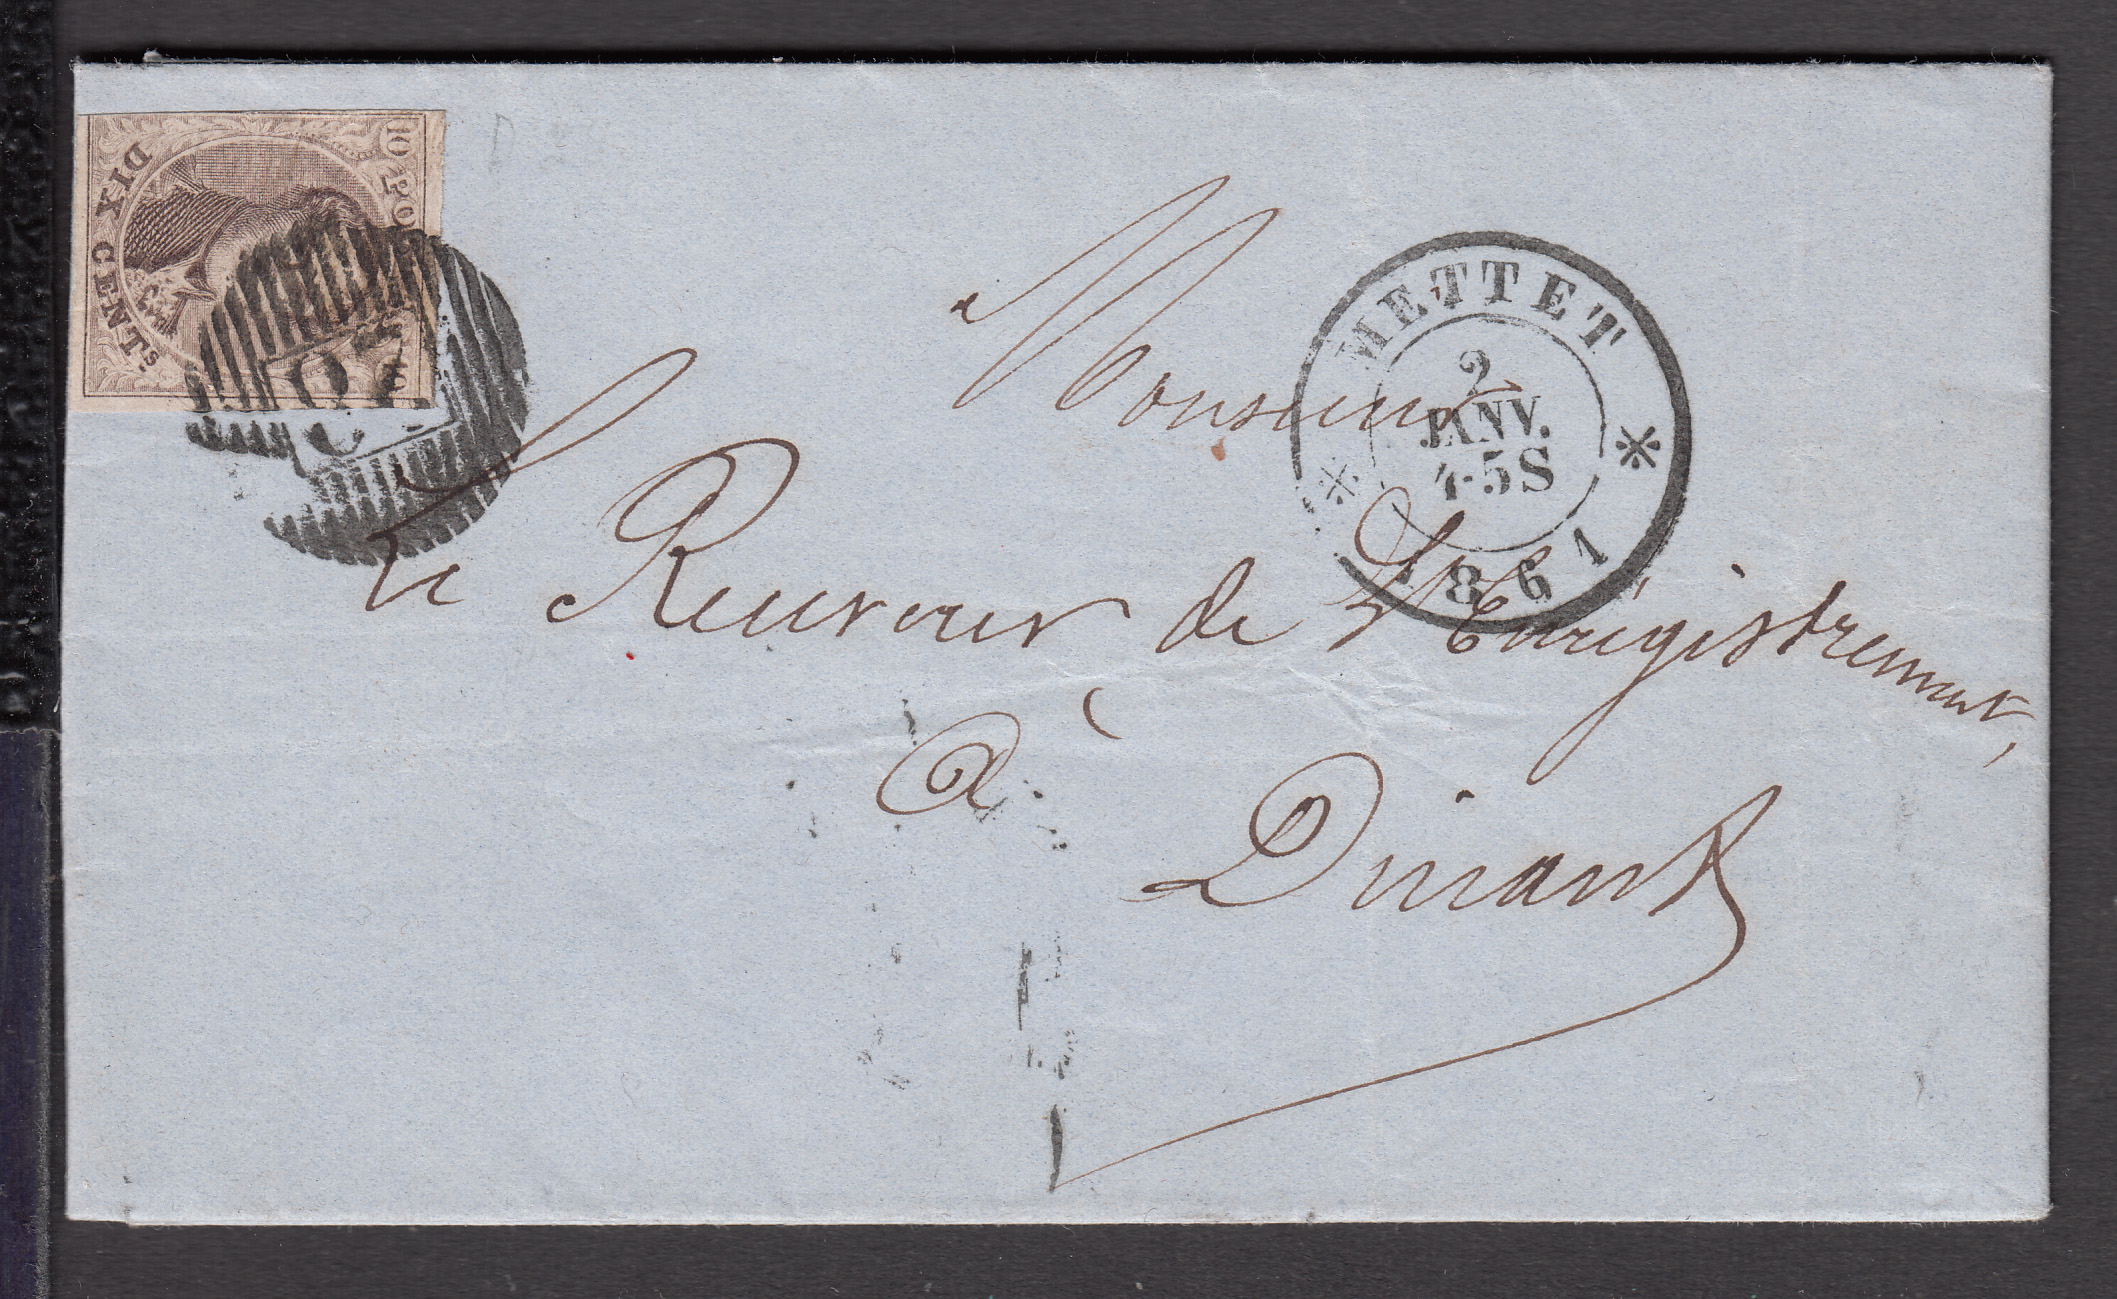 10 POSTES 10
DIX CENTS.
METTET
2
JANV.
4-5S
1861
Monsieur
le Receveur de l'Enrégistrement,
à
Dinant